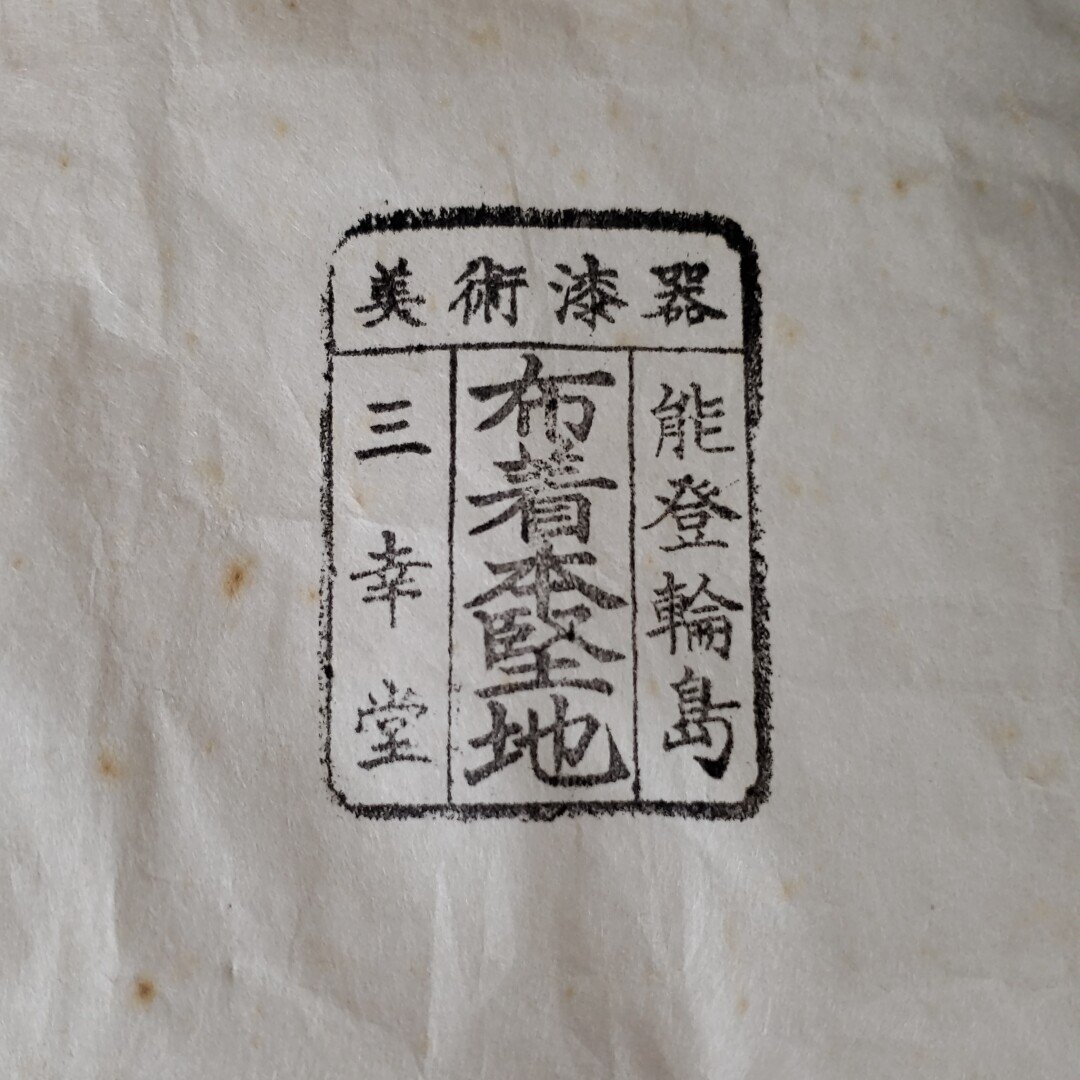 美術漆器
能登輪島
布着本堅地
三幸堂